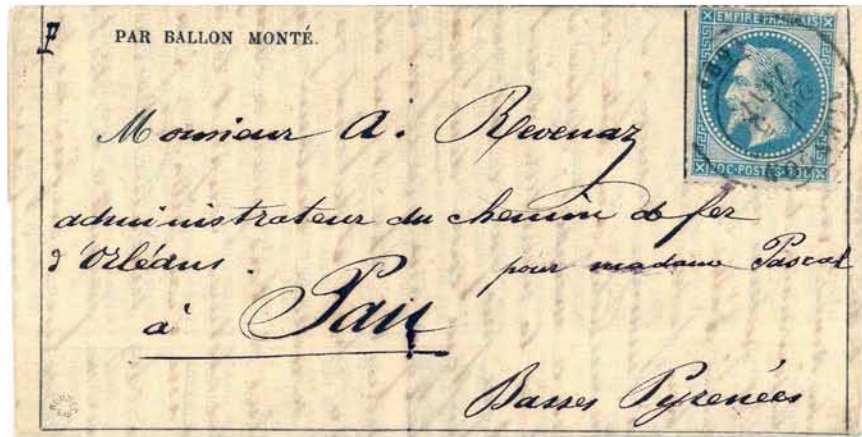 P
PAR BALLON MONTÉ.
EMPIRE FRANÇAIS
20 C-POSTES-20 C
Monsieur A. Revenaz
administrateur du chemin de fer
d'Orléans.
pour madame Pascal
à Pau
Basses Pyrenées